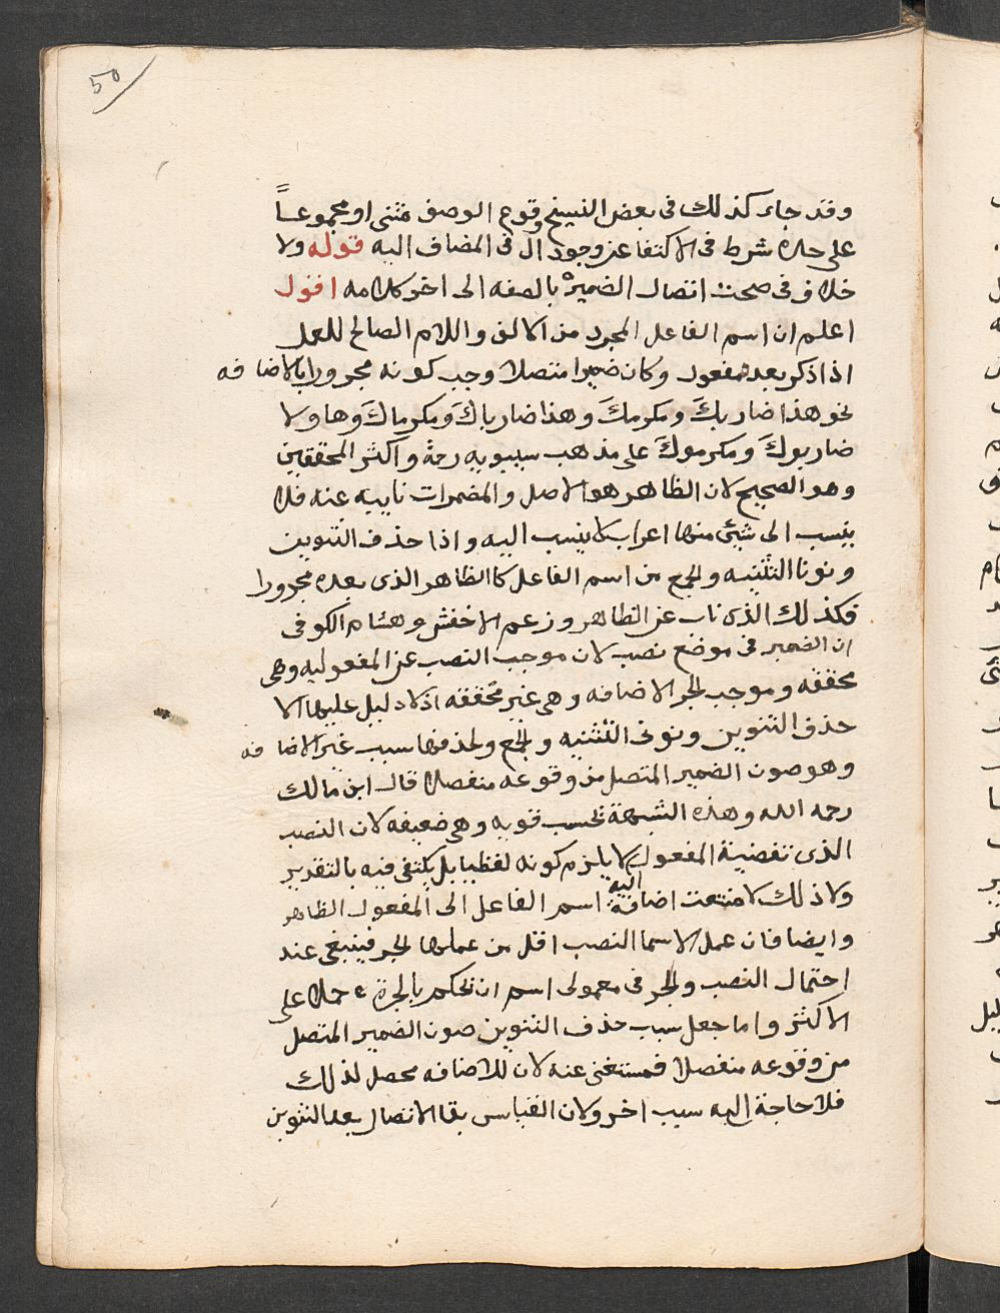 50
وقد جاء كذلك فى بعض النسيخ وقوع الوصف مثنى او مجموعاً
على حده شرط فى الاكتفا عن وجود ال فى المضاف اليه قوله ولا
خلاف فى صحت اتصال الضمير بالصفه الى اخر كلامه اقول
اعلم ان اسم الفاعل المجرد من الالف واللام الصالح للعمل
اذا ذكر بعد مفعول وكان ضميرا متصلا وجب كونه مجرورا بالاضافه
نحو هذا ضاربكَ ومكرمكَ وهذا ضارباكَ ومكرماكَ وهاولا
ضاربوكَ ومكرموكَ على مذهب سيبويه رحة واكثر المحققين
وهو الصحيح لان الظاهر هو الاصل والمضمرات ناييه عنه فلا
ينسب الى شيئ منها اعراب لا ينسب اليه واذا حذف التنوين
ونونا التثنيه والجمع من اسم الفاعل كا الظاهر الذى بعده مجرورا
فكذلك الذى ناب عن الظاهر وزعم الاخفش وهشام الكوفى
ان الضمير فى موضع نصب لان موجب النصب عن المفعوليه وهى
محققه وموجب الجر الاضافه وهى غير محققه اذ لا دليل عليها الا
حذف التنوين ونونى التثنيه والجمع ولحذفها سبب غير الاضافه
وهو صون الضمير المتصل من وقوعه منفصلا قال ابن مالك
رحمه الله وهذه الشبهة تحسب قويه وهى ضعيفه لان النصب
الذى تقضية المفعول لا يلزم كونه لفظيا بل يكتفى فيه بالتقدير
ولا ذلك لا منتعت اضافة اسم الفاعل الى المفعول الظاهر
وايضا فان عمل الاسما النصب اقل من عملها الجر فينبغى عند
احتمال النصب والجر فى معمولى اسم ان تحكم بالجرة حملا على
الاكثر واما جعل سبب حذف التنوين صون الضمير المتصل
من وقوعه منفصلا فمستغنى عنه لان للاضافه محصل لذلك
فلا حاجة اليه سبب اخر ولان القياس بقا الاتصال بعد التنوين